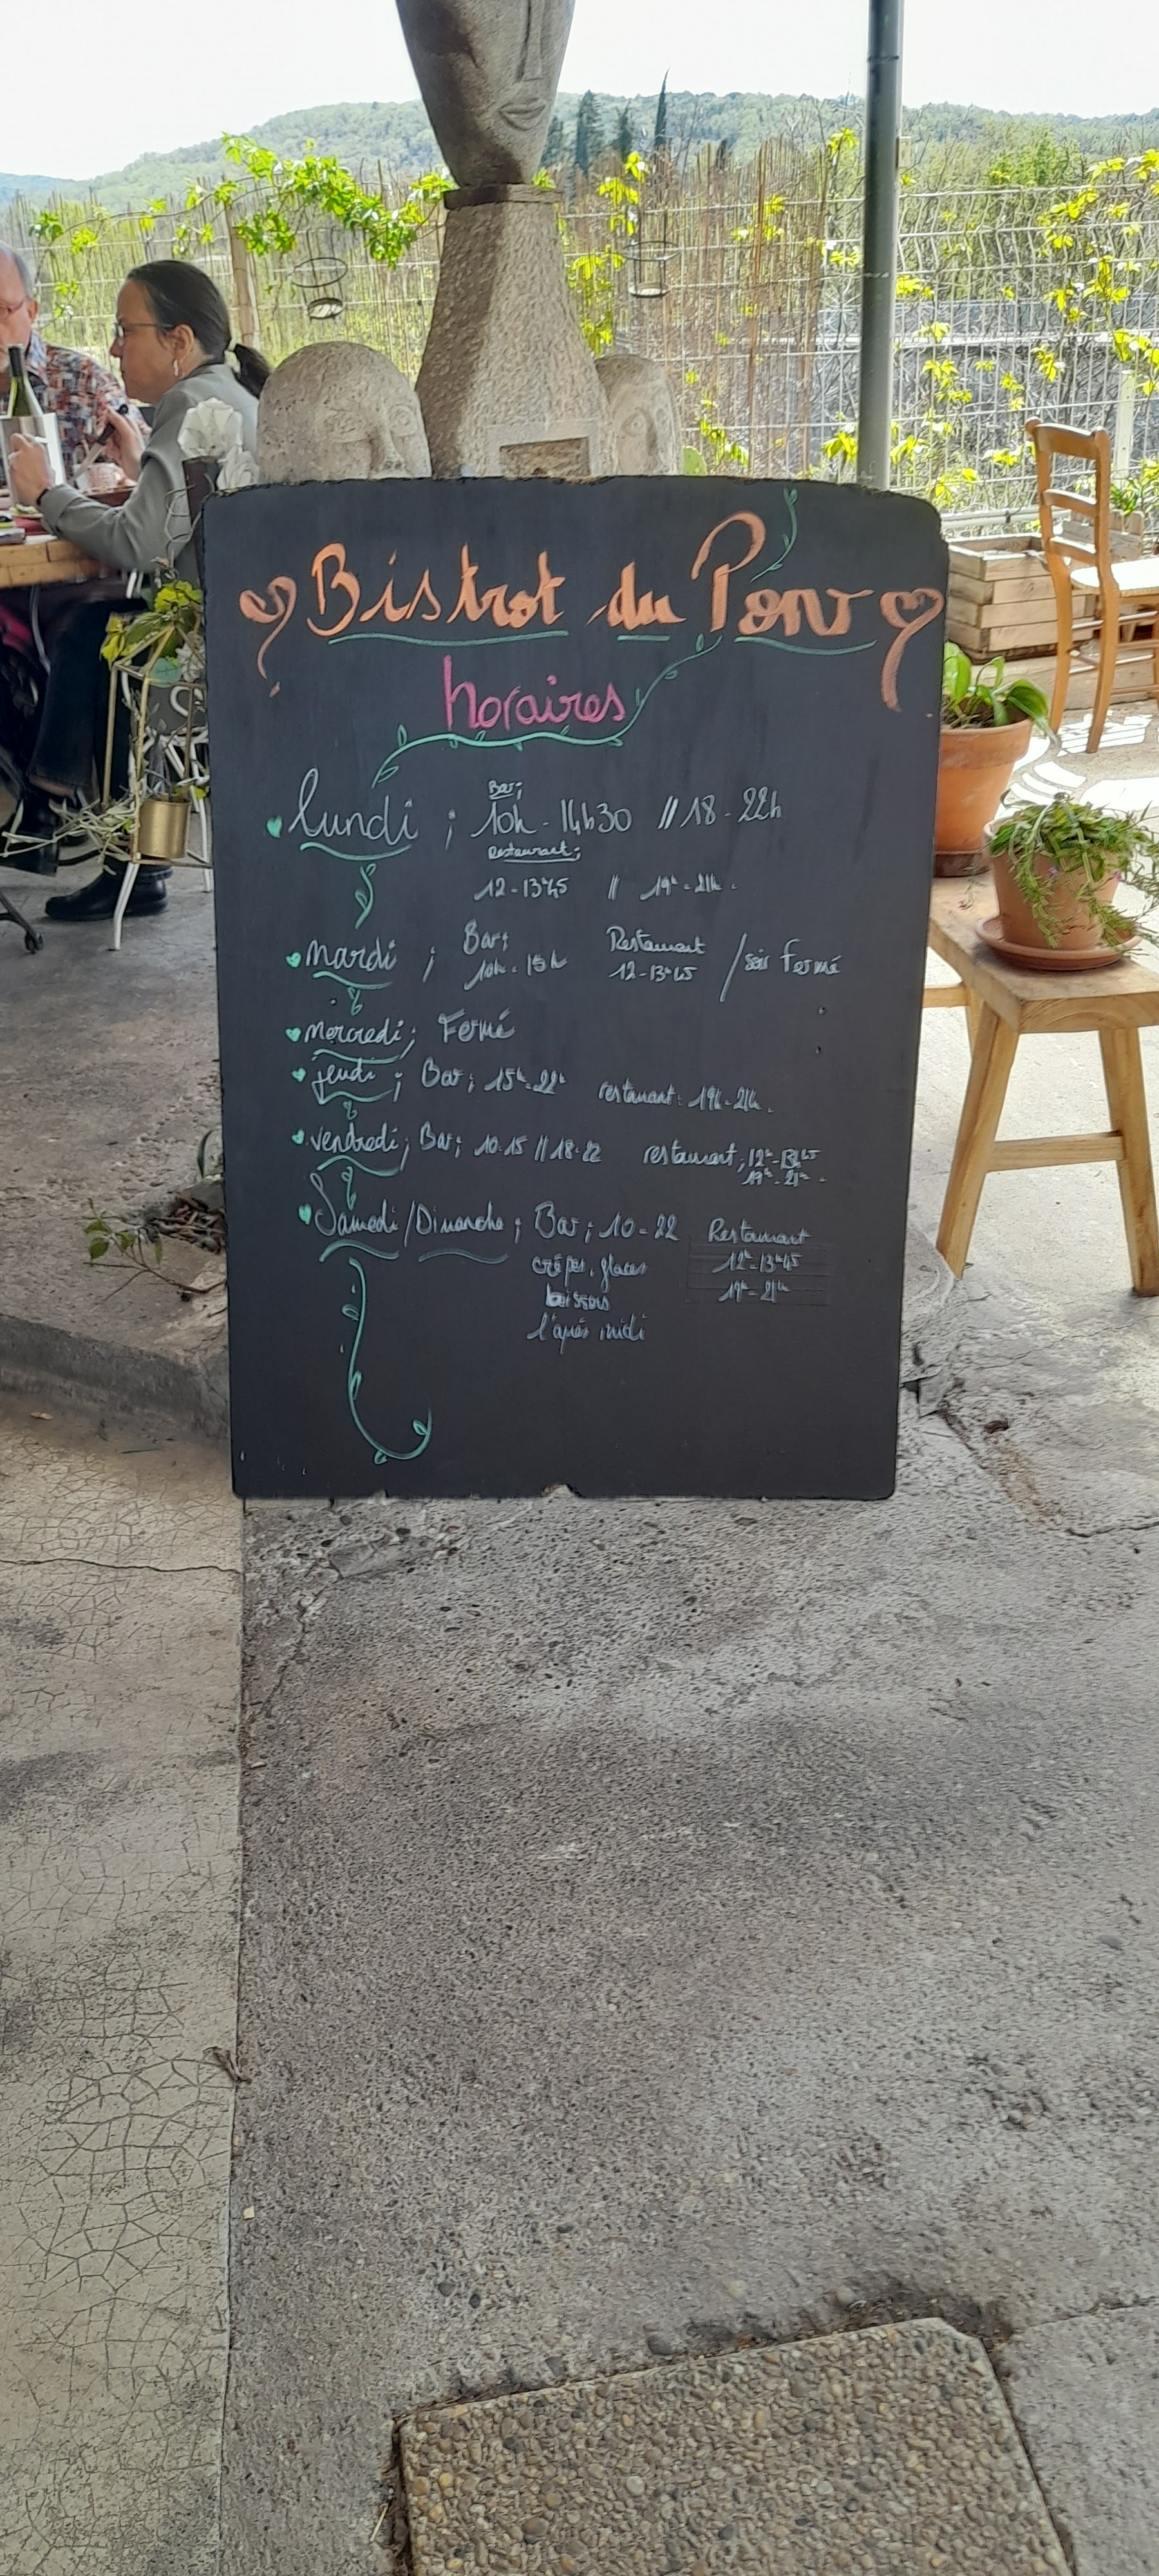 Bistrot du Pont
horaires
Bar;
lundi ; 10h - 14h30 // 18 - 22h
Restaurant;
12 - 13h45 // 19h - 21h.
mardi ; Bar; Restaurant / soir Fermé
10h - 15h 12 - 13h45
mercredi; Fermé
jeudi ; Bar; 15h - 22h restaurant: 19h - 21h.
vendredi; Bar; 10-15 // 18-22 restaurant; 12h - 13h45
19h - 21h.
Samedi/Dimanche ; Bar; 10 - 22 Restaurant
crêpes, glaces 12h - 13h45
boissons 19h - 21h
l'après midi